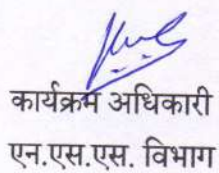 कार्यक्रम अधिकारी
एन.एस.एस. विभाग